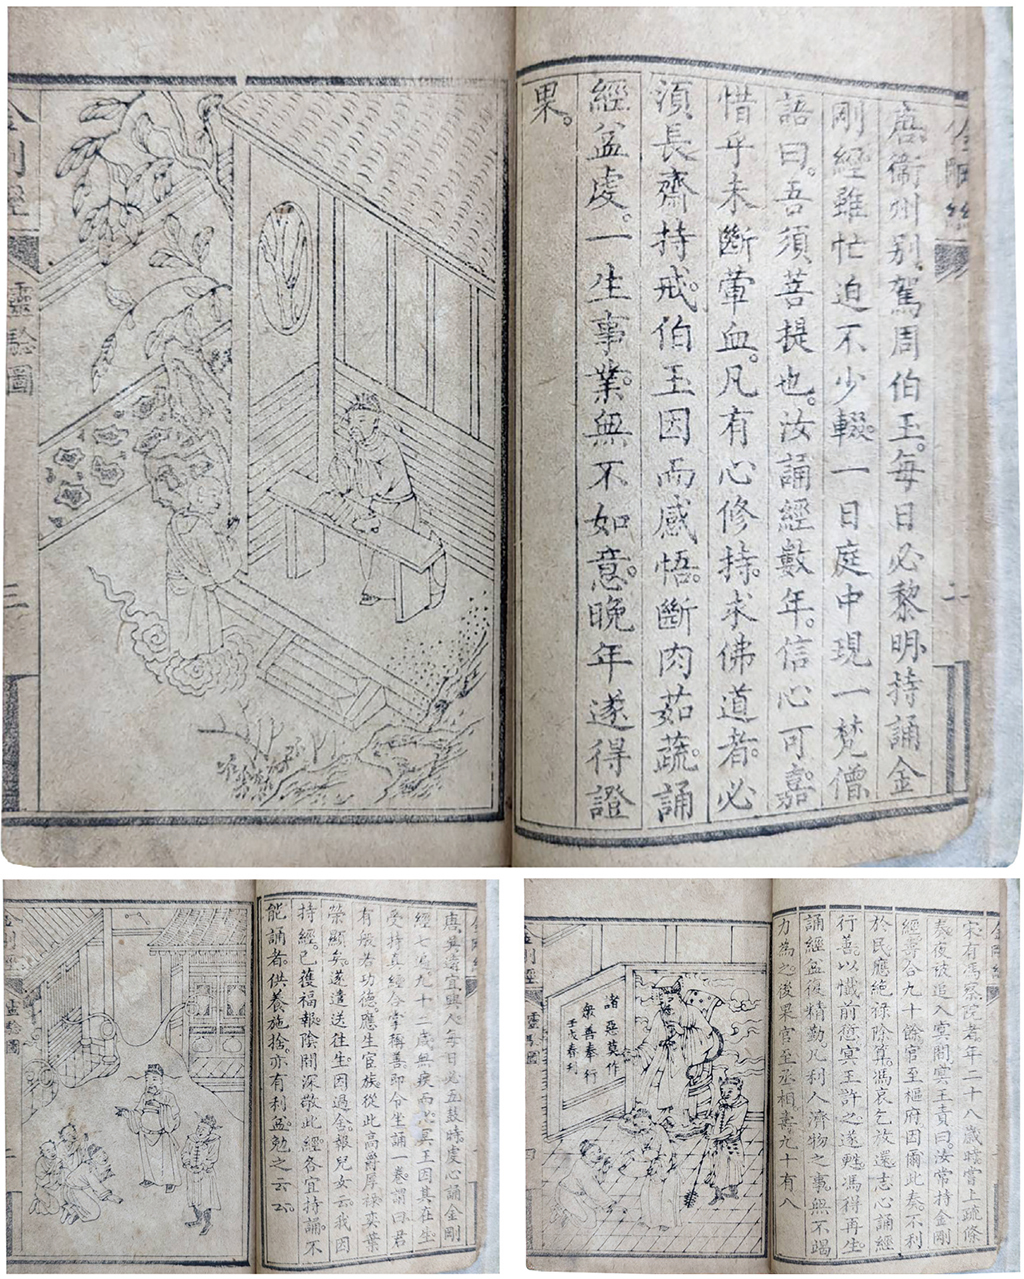 唐衞州别駕周伯玉。每日必黎明持誦金
剛經雖忙迫不少輟。一日庭中現一梵僧
語曰。吾須菩提也。汝誦經數年。信心可嘉。
惜乎未斷葷血。凡有心修持。求佛道者。必
須長齋持戒。伯玉因而感悟。斷肉茹蔬。誦
經益虔。一生事業。無不如意。晚年遂得證
果。
金剛經
靈驗圖
二
宜興人每日必五鼓時。虔心誦金剛
經七遍。九十二歲無疾而
冥王因其在生
受持真經合掌稱善即令坐誦一卷。謂曰君
有般若功德應生宦族從此高爵厚祿奕葉
榮顯矣。遂遣送往生因過舍。報兒女云。我因
持經。已獲福報陰間深敬此經各宜持誦。不
能誦者。供養施捨。亦有利益勉之云云。
金剛經
靈驗圖
宋有馮察院者年二十八歲時嘗上疏條
奏夜被追入冥間冥王責曰汝常持金剛
經壽合九十餘官至樞府因爾此奏不利
於民應絶祿除算。馮哀乞放還志心誦經
行善以懺前愆冥王許之遂甦。馮得再生。
誦經益復精勤凡利人濟物之事無不竭
力為之後果官至丞相壽九十有八
諸惡莫作
衆善奉行
壬戌春刋
金剛經
靈驗圖